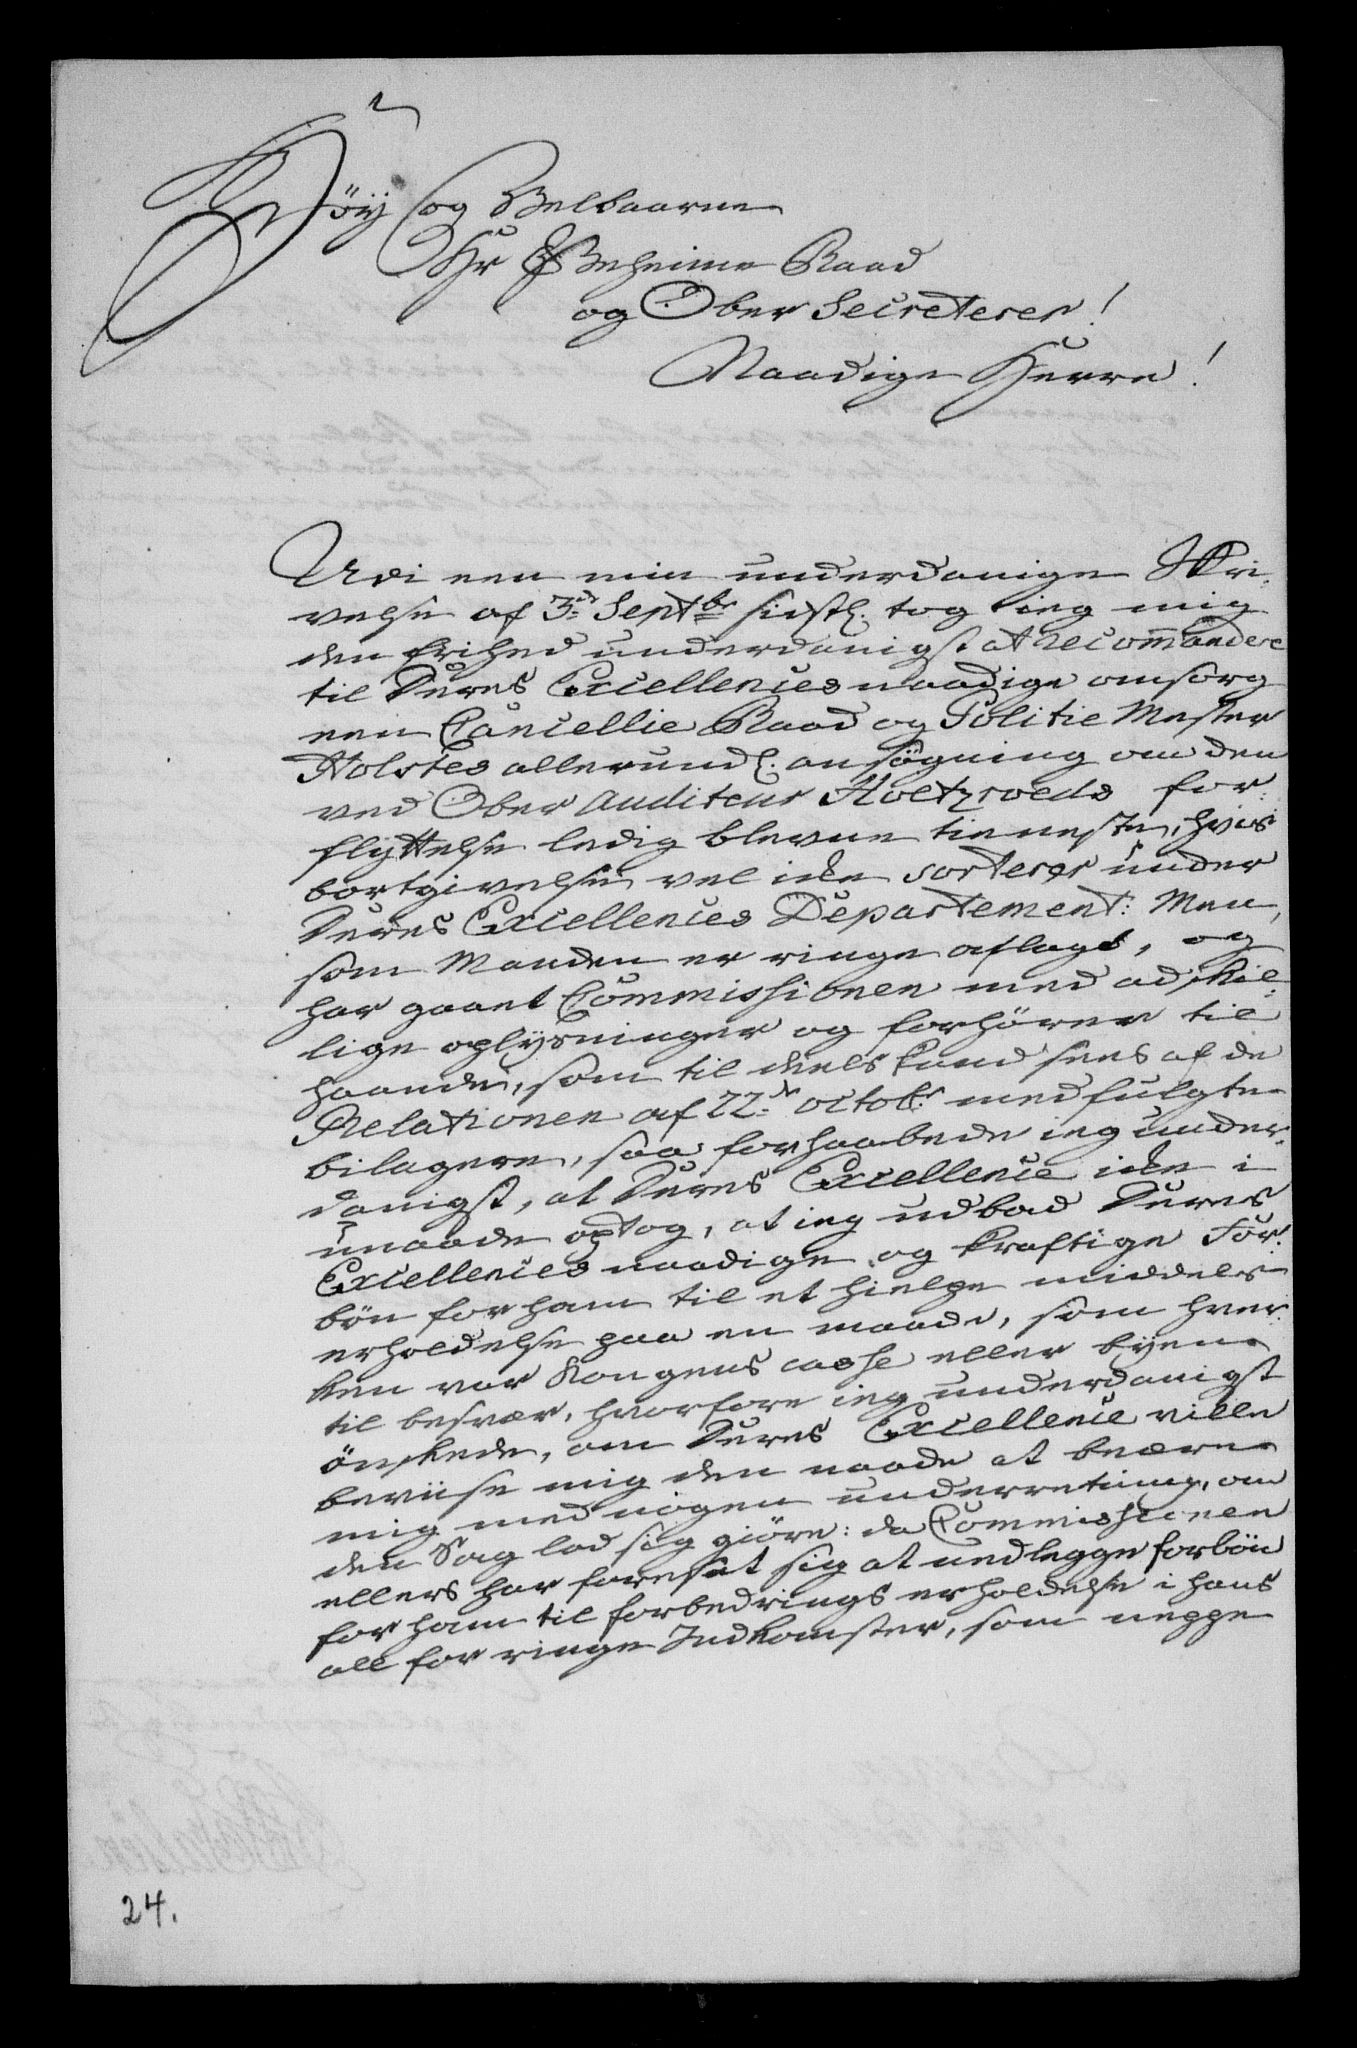 Höy og Velbaarne
Hr Geheime Raad
og Ober Secreterer!
Naadige Herre!
Udi een min underdanige Skri-
velse af 3de Septbr sidstl. tog ieg mig
den frihed underdanigst at recommandere
til Deres Excellences naadige omsorg
een Cancellie Raad og Politie Mester
Holstes allerundl. ansøgning om den
ved Ober Auditeur Holtzroeds for-
flyttelse ledig blevne tieneste, hvis
bortgivelse vel icke sorterer under
Deres Excellences Departement: Men,
som Manden er ringe aflagt, og
har gaaet Commissionen med adskil-
lige oplysninger og forhörer til
haande, som til deels kand sees af de
Relationen af 22de octobr medfulgte
bilagere, saa forhaabede ieg under-
danigst, at Deres Excellence icke i
unaade optog, at ieg udbad Deres
Excellences naadige og kraftige For-
bön for ham til et hielpe middels
erholdelse paa en maade, som hver-
ken var Kongens casse eller byen
til besvær, hvorfore ieg underdanigst
önskede, om Deres Excellence ville
beviise mig den naade at beære
mig med nogen underretning, om
den Sag lod sig giöre: da Commissionen
ellers har foresat sig at nedlegge forbön
for ham til forbedrings erholdelse i hans
all for ringe Indkomster, som neppe
24.